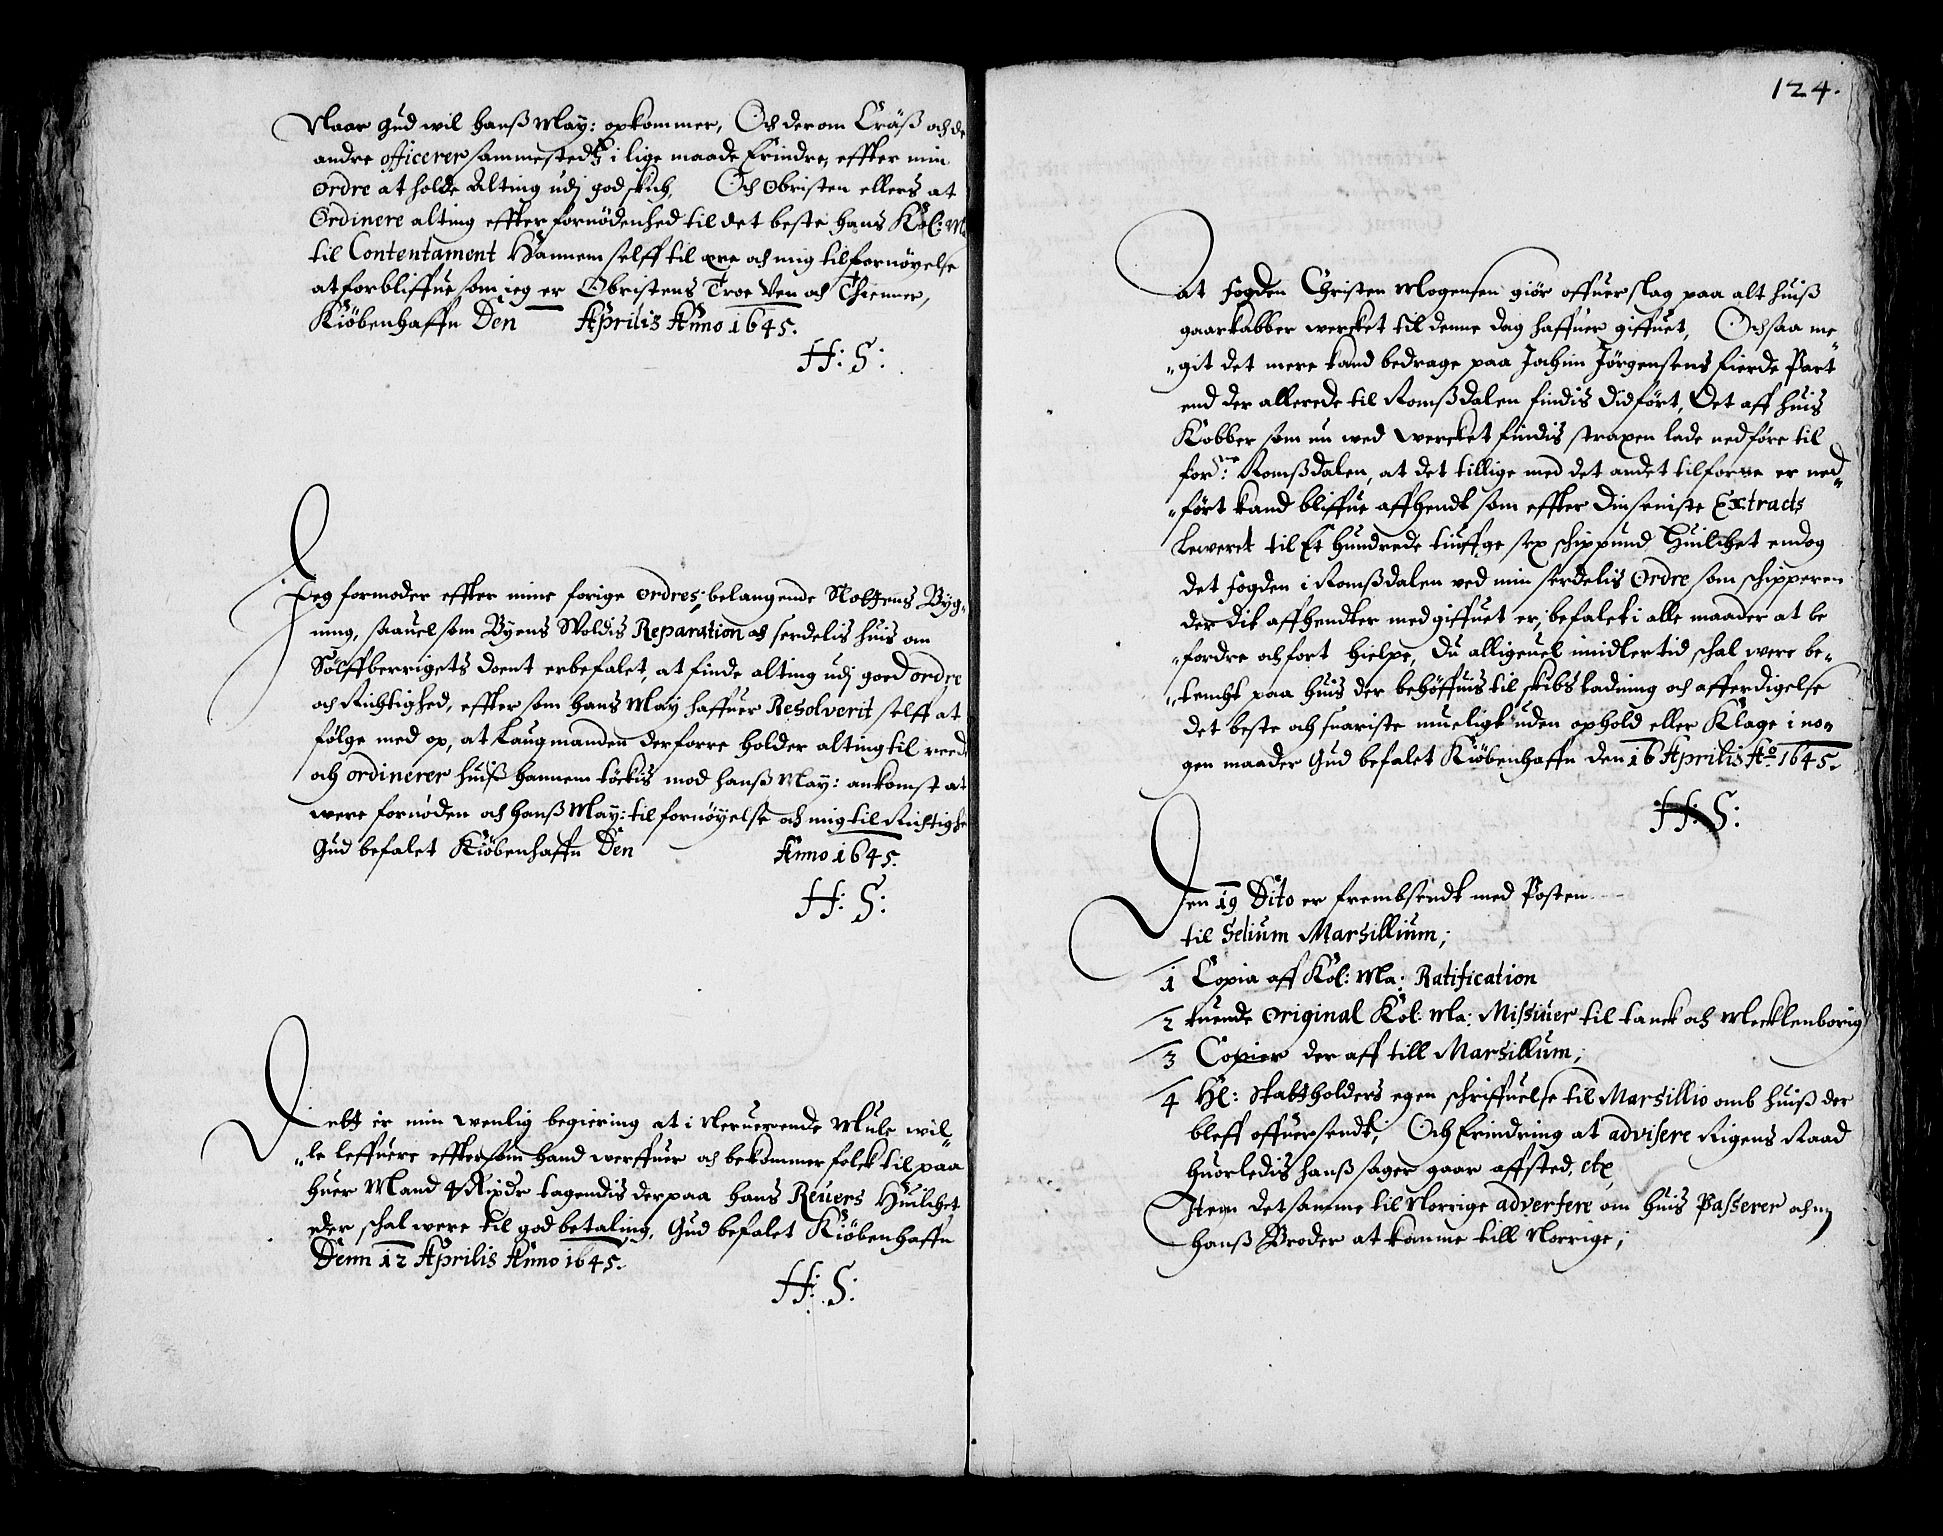 Naar Gud wil hanß May: opkommer, Och der om Cräß och de
andre officerer sammestedtz i lige maade Erindre, effter min
ordre at holde Alting udj god skich, Och Obristen ellers at
Ordinere alting effter fornödenhed til det beste hans Köl: Ma
til Contentament Hannem selff til ære och mig til fornöyelse
at forbliffue som ieg er Obristens Troe Ven och Thienner,
Kiöbenhaffn Den Aprilis Anno 1645.
H: S:
Jeg formoder effter mine forige ordres, belangende Slottens Byg-
ning, saauel som Byens Woldis Reparation och serdelis huis om
Sölffberrigets doent er befalet, at finde alting udj goed ordre
och Richtighed, effter som hans May haffuer Resolverit selff at
fölge med op, at Laugmanden derforre holder alting til reed
och ordinerer huiß hannem töckis mod hanß May: ankomst at
were fornöden och hanß May: til fornöyelse och mig til Richtighe
Gud befalet Kiöbenhaffn Den Anno 1645.
H: S:
Dette er min venlig begiering at i Neruerende Mule wil-
"le leffuere effter som hand werffuer och bekommer folck til paa
huer Mand 4 Rixdr tagendis der paa hans Revers Huilchet
eder schal were til god betaling, Gud befalet Kiöbenhaffn
Denn 12 Aprilis Anno 1645.
H: S:
124.
At fogden Christen Mogensen giör offuerslag paa alt huiß
gaarkabber wercket til denne dag haffuer giffuet, Och saa me
"git det mere kand bedrage paa Jochim Jörgensens fierde Part
end der allerede til Romßdalen findis didfört, Det aff huis
Kobber som nu wed wercket findis straxen lade nedföre til
forne: Romßdalen, at det tillige med det andet tilforne er ned"
"fört kand bliffue affhendt som effter din seniste Extracts
Leweret til Et Hundrede tiuffge sex schippund Huilchet endog
det fogden i Romßdalen ved min serdelis Ordre som schipperen
der dit affhendter medgiffuet er, befalet i alle maader at be
"fordre och fort hielpe, Du alligeuel imidlertid schal were be-
"tencht paa huis der behöffuis til skibs ladning och afferdigelse
det beste och snariste mueligt uden ophold eller Klage i no"
gen maader Gud befalet Kiöbenhaffn den 16 Aprilis Ao. 1645.
H: S:
Den 19 Dito er frembsendt med Posten
til Selium Marsillium;
1 Copia aff Köl: Ma: Ratification
2 tuende Original Köl: Ma: Missiuer til tanck och Mecklenborig
3 Copier der aff till Marsillum;
4 Hl: Stattholders egen schriffuelse til Marsillio omb huiß der
bleff offuersendt, Och Erindring at advisere Rigens Raad
huorledis hanß sager gaar affsted, etc
Item det samme til Norrige advertere om huis Passerer och
hanß Broder at komme till Norrige;